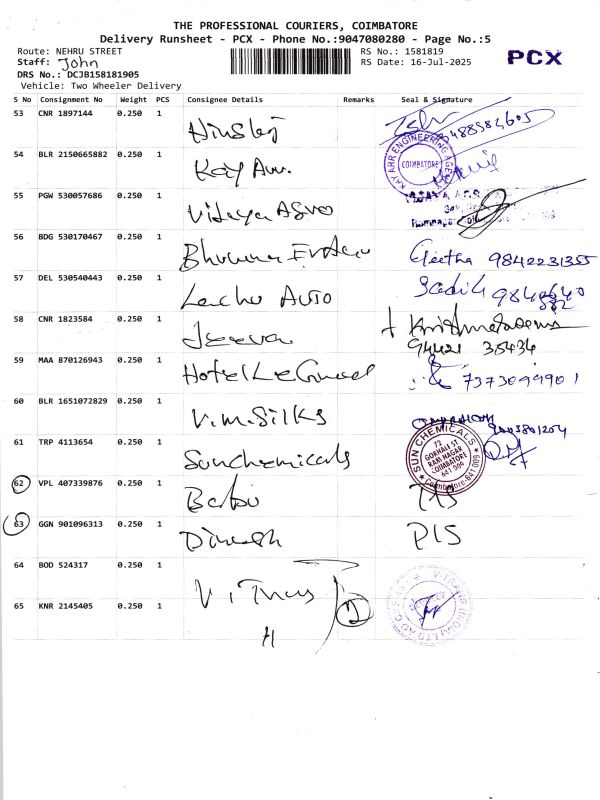 THE PROFESSIONAL COURIERS, COIMBATORE
Delivery Runsheet - PCX - Phone No.:9047080280 - Page No.:5
Route: NEHRU STREET
Staff: John
DRS No.: DCJB158181905
Vehicle: Two Wheeler Delivery
RS No.: 1581819
RS Date: 16-Jul-2025
PCX
S No Consignment No Weight PCS Consignee Details Remarks Seal & Signature
53 CNR 1897144 0.250 1
54 BLR 2150665882 0.250 1 Kay Arr. KAY ARR ENGINEERING COIMBATORE
55 PGW 530057686 0.250 1 Vidaya Agro
56 BDG 530170467 0.250 1 Geetha 9842231355
57 DEL 530540443 0.250 1 Auto
58 CNR 1823584 0.250 1 Jeeva
94421 35434
59 MAA 870126943 0.250 1 Hotel
60 BLR 1651072829 0.250 1 V.M.Silks
61 TRP 4113654 0.250 1 Sunchemicals SUN CHEMICALS 72 GOKHALE ST RAM NAGAR COIMBATORE 641 009 Coimbatore-641 009
62 VPL 407339876 0.250 1 Babu
63 GGN 901096313 0.250 1 Dinesh
64 BOD 524317 0.250 1
65 KNR 2145405 0.250 1